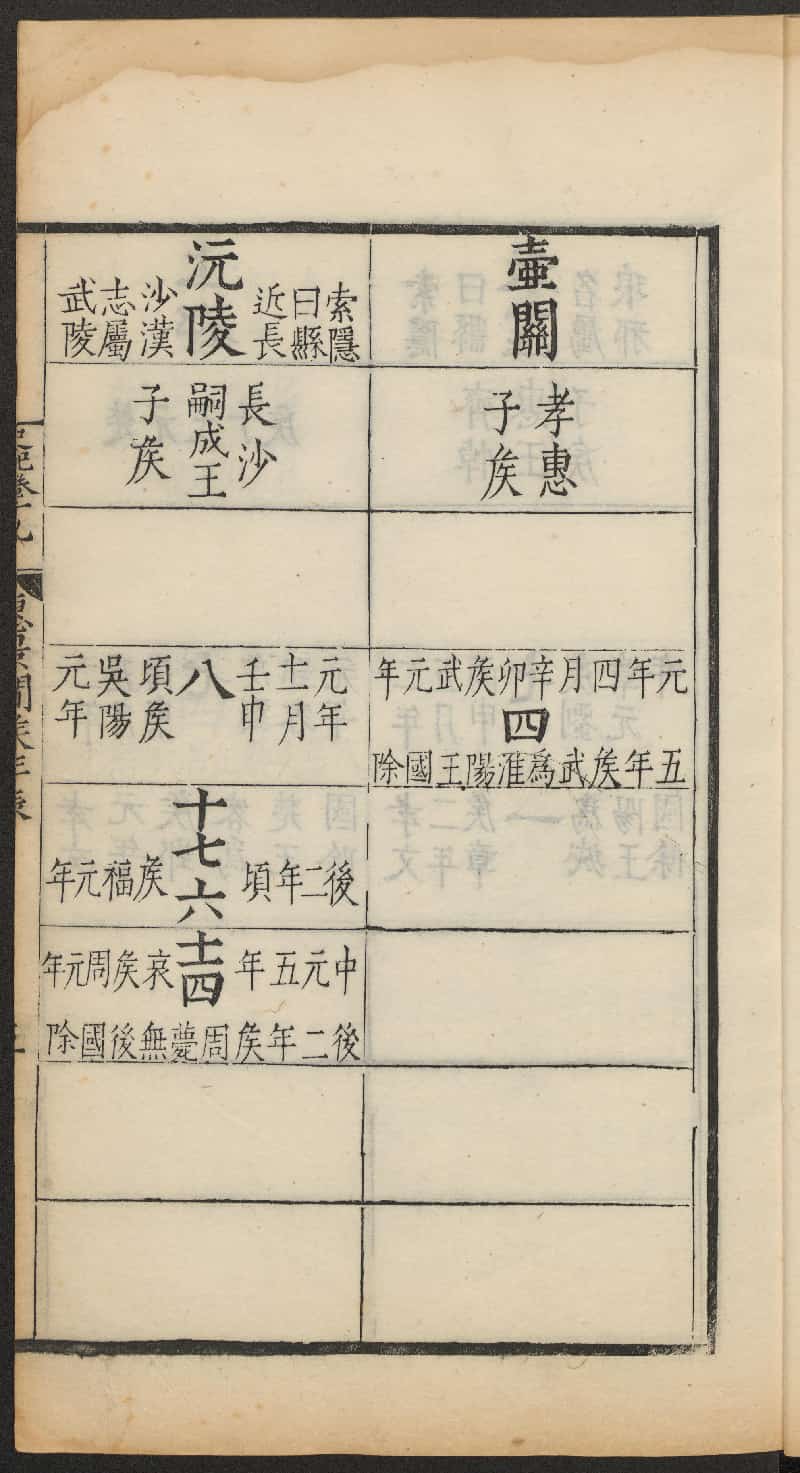 壷關
孝惠
子矦
元年四月辛卯矦武元年
四
五年矦武爲淮陽王國除
沅陵
索隱
曰縣
近長
沙漢
志屬
武陵
長沙
嗣成王
子矦
元年
十一月
壬申
八
頃矦
吳陽
元年
十七
後二年頃
六
矦福元年
中元五年
十一
四
哀矦周元年
後二年矦周薨無後國除